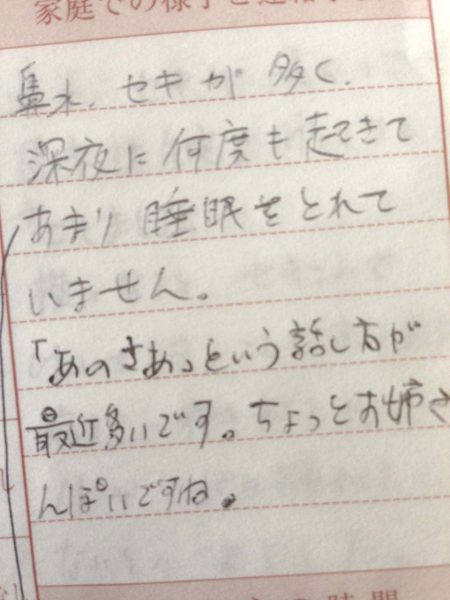 家庭での様子と連絡
鼻水、セキが多く、
深夜に何度も起てきて
あまり睡眠をとれて
いません。
「あのさあ」という話し方が
最近多いです。ちょっとお姉さ
んぽいですね。
時間